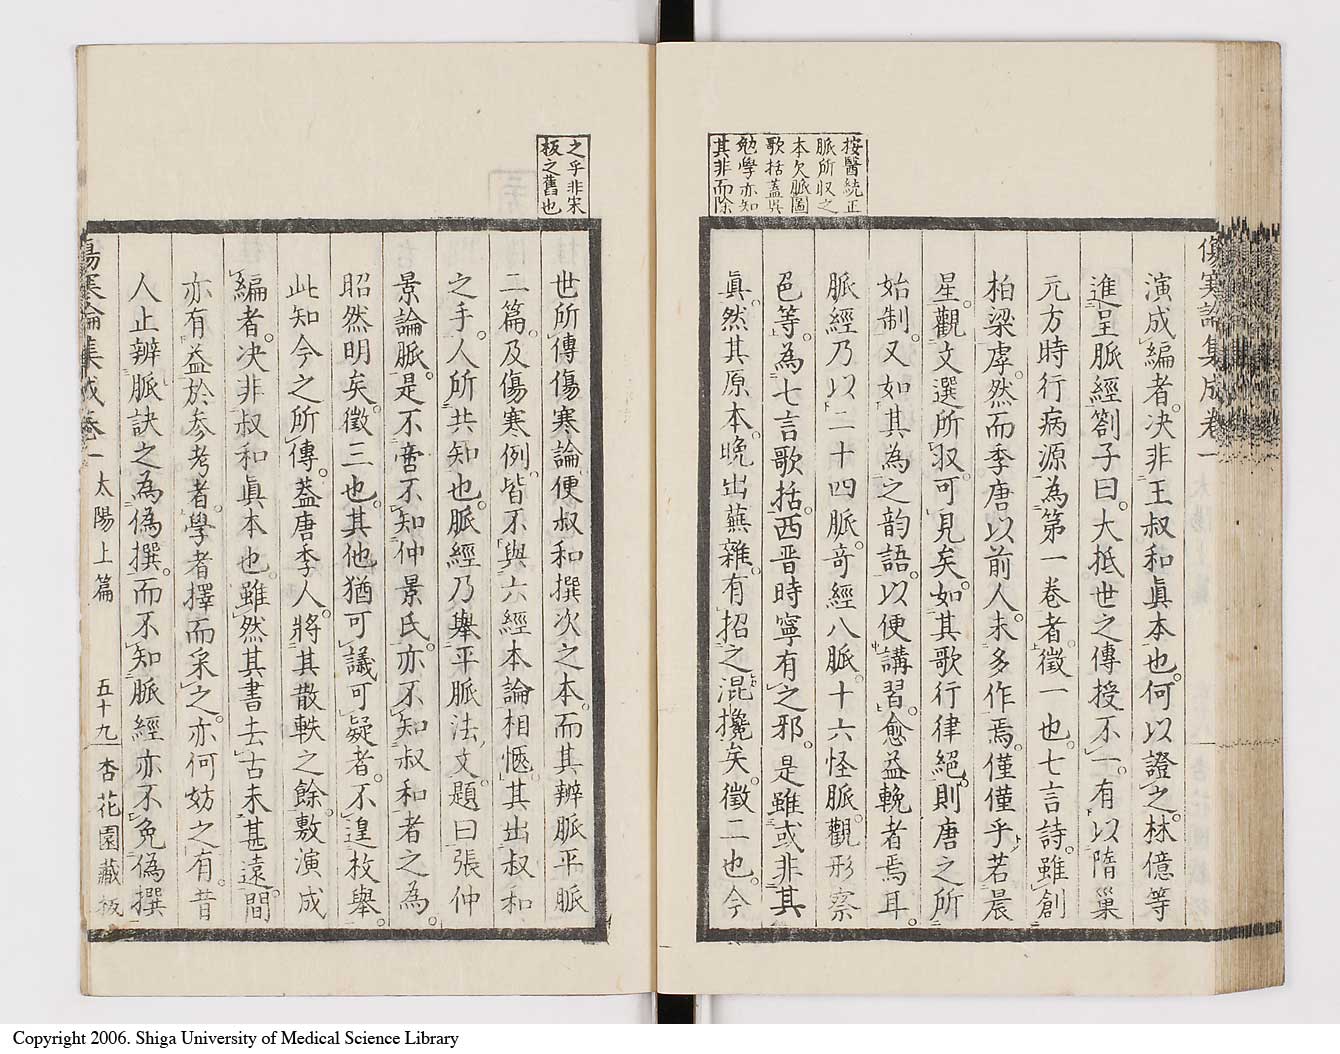 按醫統正
脈所収之
本欠脈圖
歌括蓋吳
勉學亦知
其非而除
傷寒論集成卷一
演成編者。决非王叔和眞本也。何以證之。林億等
進呈脈經劄子曰。大抵世之傳授不一。有以隋巢
元方時行病源為第一卷者。徵一也。七言詩。雖創
柏梁䑓。然而李唐以前人。未多作焉。僅僅乎若晨
星。觀文選所収。可見矣。如其歌行律絕。則唐之所
始制。又如其為之韵語。以便講習。愈益輓者焉耳。
脈經乃以二十四脈。奇經八脈。十六怪脈。觀形察
色等。為七言歌括。西晋時寧有之邪。是雖或非其
眞。然其原本。晚出蕪雜。有招之混攙矣。徵二也。今
之乎非宋
板之舊也
世所傳傷寒論便叔和撰次之本。而其辨脈平脈
二篇。及傷寒例。皆不與六經本論相愜。其出叔和
之手。人所共知也。脈經乃舉平脈法文。題曰張仲
景論脈。是不啻不知仲景氏。亦不知叔和者之為。
昭然明矣。徵三也。其他猶可議可疑者。不遑枚舉。
此知今之所傳。蓋唐季人。將其散軼之餘。敷演成
編者。决非叔和眞本也。雖然其書去古未甚遠。間
亦有益於參考者。學者擇而采之。亦何妨之有。昔
人止辨脈訣之為偽撰。而不知脈經亦不免偽撰
傷寒論集成卷一 太陽上篇 五十九 杏花園藏板
Copyright 2006. Shiga University of Medical Science Library